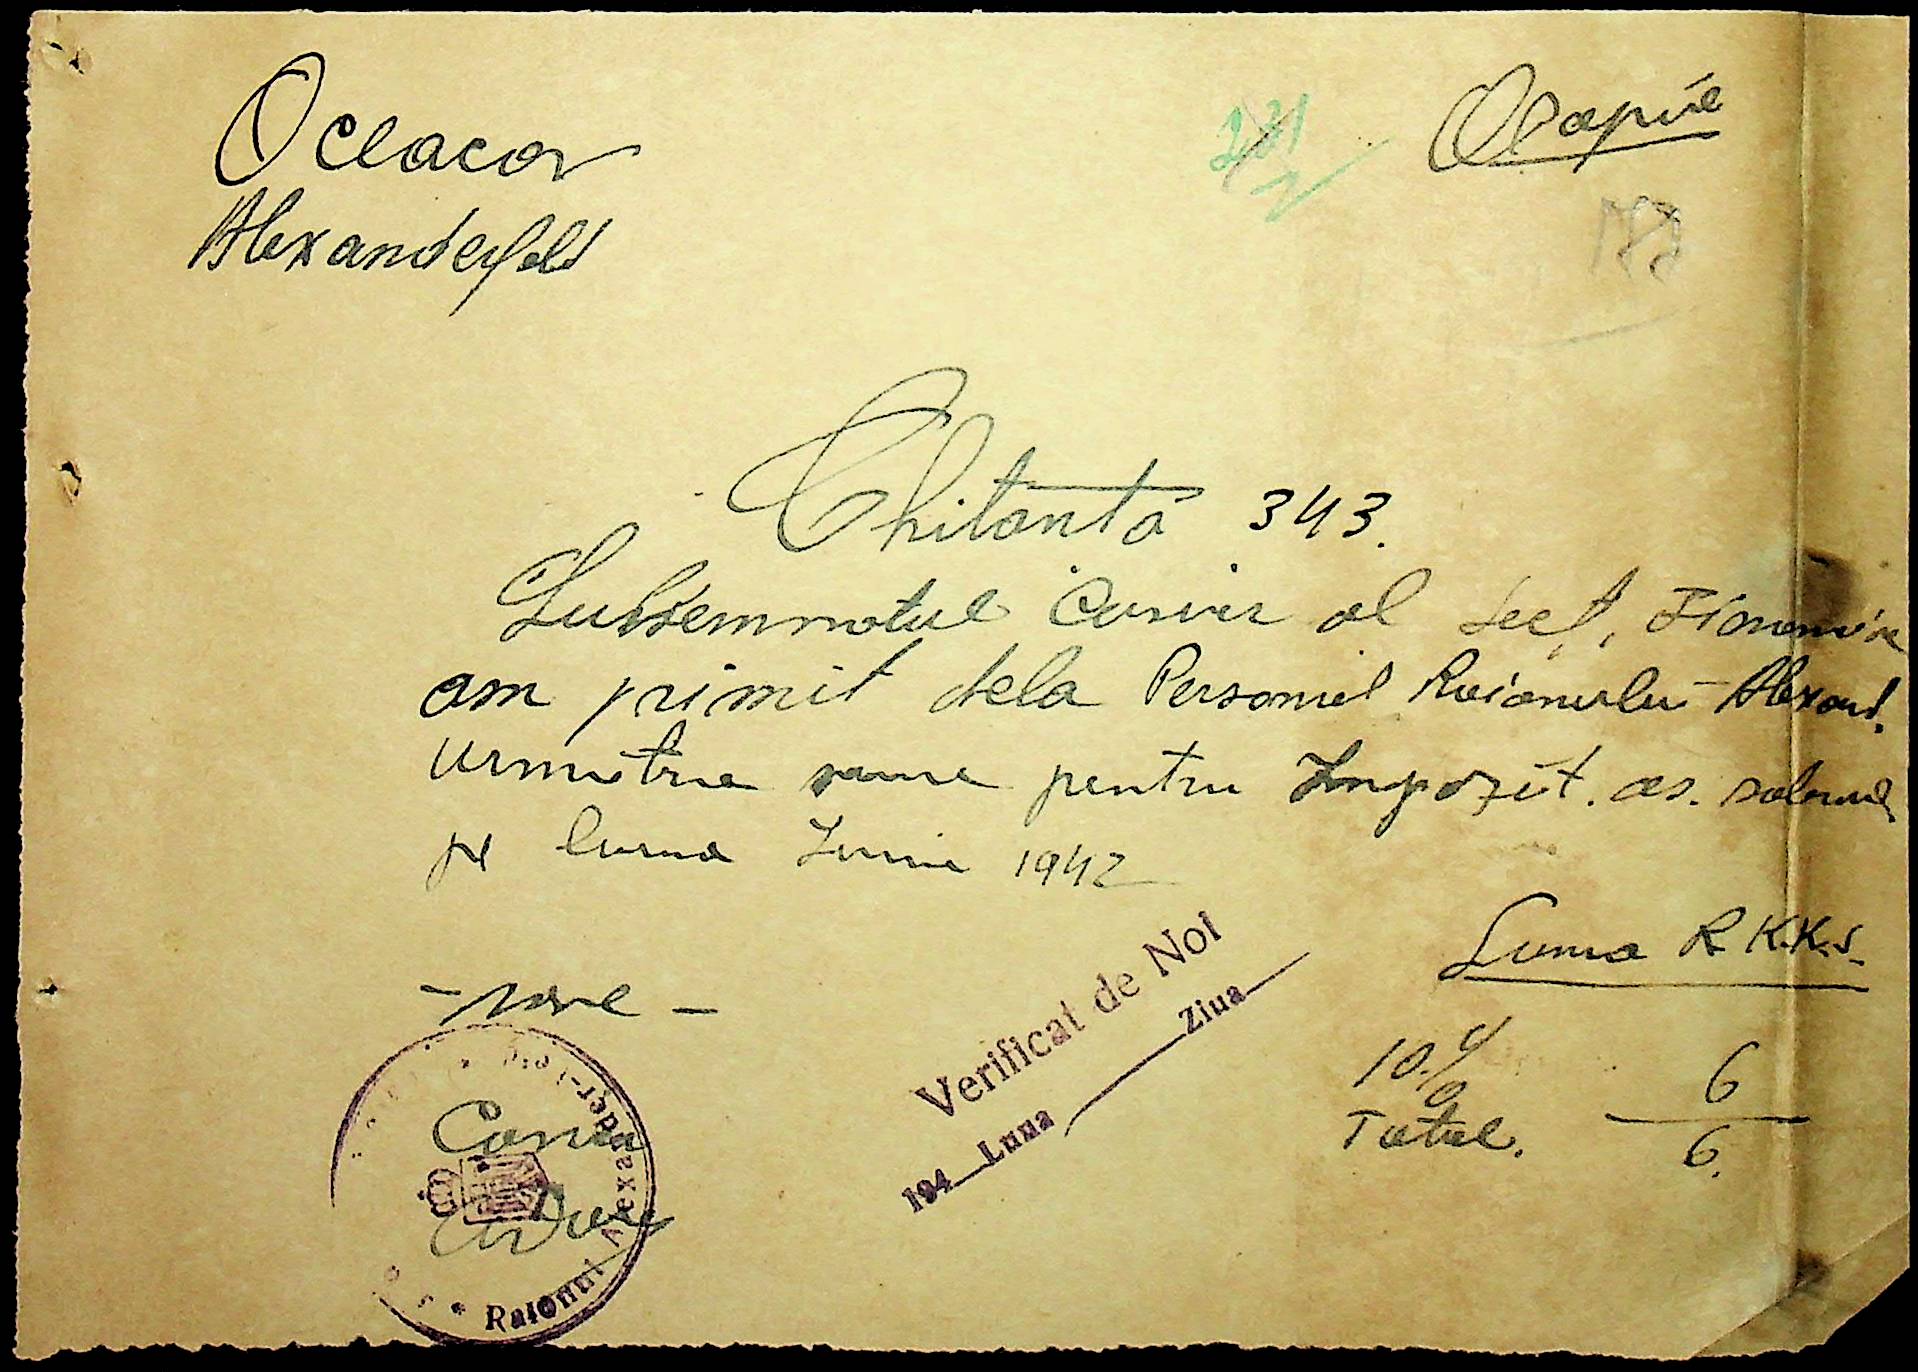 Oclacov
Alexanderfeld
Chitantă 343.
Subsemnatul Casier al Sect. Financiar
am primit dela Personel Raionului Alexand.
urmatrea sume pentru Impozit. as. salariul
pe luna Iunie 1942
Suma R.K.K.S.
10 %
6
Total.
6.
Verificat de Noi
194 Luna Ziua
Raionul Alexander-feld